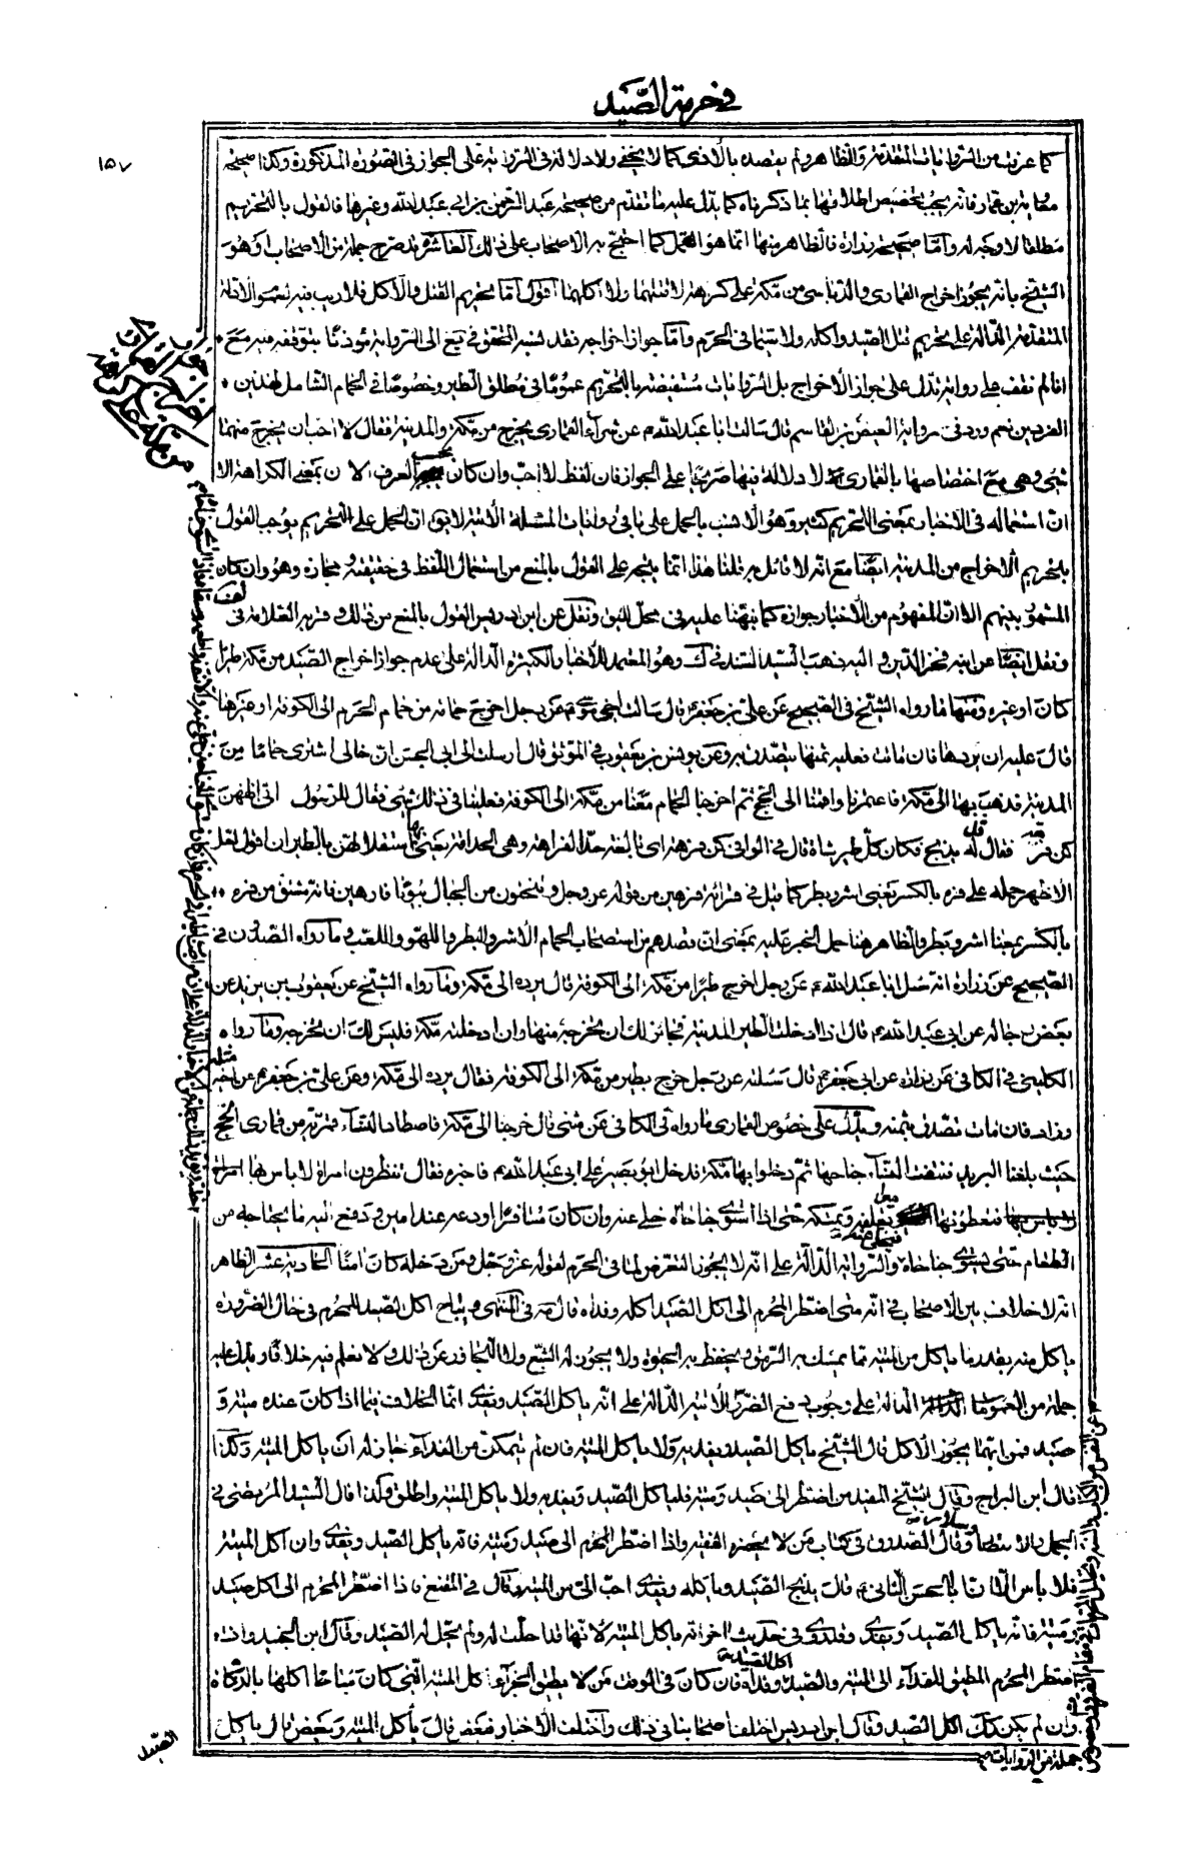 في حرمة الصيد
١٥٧
كما عرفت من الروايات المتقدمة والظاهر ولم يقصده بالأذى كما لا يخفى ولا دلالة في الرواية على الجواز في الصورة المذكورة وكذا صحيحة
معاوية بن عمار فانه يجب تخصيص اطلاقها بما ذكرناه كما يدل عليه ما تقدم من صحيحة عبد الرحمن بن ابي عبد الله وغيرها فالقول بالتحريم
مطلقا لا وجه له وأما صحيحة زرارة فالظاهر منها انما هو القمل كما احتج به الاصحاب على ذلك العاشرة قد صرح جملة من الاصحاب وهو
الشيخ بانه يجوز اخراج القمارى والدباسى من مكة على كراهة لا قتلهما ولا اكلهما اقول أما تحريم القتل والاكل فلا ريب فيه لعموم الأدلة
المتقدمة الدالة على تحريم قتل الصيد واكله ولا سيما فى الحرم وأما جواز اخراجه فقد نسبه المحقق في يع الى الرواية مؤذنا بتوقفه فيه مع
انا لم نقف على رواية تدل على جواز الاخراج بل الروايات مستفيضة بالتحريم عموما في مطلق الطير وخصوصا في الحمام الشامل لهذين
الفردين نعم ورد في رواية العيص بن القاسم قال سالت ابا عبد الله ع عن شراء القمارى يخرج من مكة والمدينة فقال لا احب ان يخرج منهما
شيئ وهى مع اختصاصها بالقمارى لا دلالة فيها صريحا على الجواز فان لفظ لا احب وان كان بحسب العرف الان بمعنى الكراهة الا
ان استعماله في الاخبار بمعنى التحريم كثير وهو الانسب بالحمل على باقي روايات المسئلة الآتية لا يق ان الحمل على التحريم يوجب القول
بتحريم الاخراج من المدينة ايضا مع انه لا قائل به قلنا هذا انما يتجه على القول بالمنع من استعمال اللفظ في حقيقته ومجازه وهو وان كان
المشهور بينهم الا ان المفهوم من الأخبار جوازه كما نبهنا عليه في محل اليق ونقل عن ابن ادريس القول بالمنع من ذلك وقربه العلامة في
ونقل ايضا عن ابنه فخر الدين واليه ذهب السيد السند في ك وهو المعتمد للأخبار الكثيرة الدالة على عدم جواز اخراج الصيد من مكة طيرا
كان او غيره ومنها ما رواه الشيخ في الصحيح عن على بن جعفر قال سالت اخى موسى ع عن رجل اخرج حمامة من حمام الحرم الى الكوفة او غيرها
قال عليه ان يردها فان ماتت فعليه ثمنها يتصدق به وعن يونس بن يعقوب في الموثق قال ارسلت الى ابى الحسن ان خالى اشترى حماما من
المدينة فذهب بها الى مكة فاعتمرنا واقمنا الى الحج ثم اخرجنا الحمام معنا من مكة الى الكوفة فعلينا في ذلك شيئ فقال للرسول انى اظنهن
كن فرهة قل له يذبح مكان كل طير شاة قال في الوافي كن فرهة اى بالغة حد الفراهة وهى الحذاقة يعنى بها استقلالهن بالطيران اقول لعل
الأظهر حمله على فره بالكسر بمعنى اشر وبطر كما قيل في قرائة فرهين من قوله عز وجل وتنحتون من الجبال بيوتا فارهين فانه مشتق من فره
بالكسر بمعنى اشر وبطر والظاهر هنا حمل الخبر عليه بمعنى ان قصدهم من استصحاب الحمام الأشر والبطر واللهو واللعب وما رواه الصدوق في
الصحيح عن زرارة انه سئل ابا عبد الله ع عن رجل اخرج طيرا من مكة الى الكوفة قال يرده الى مكة وما رواه الشيخ عن يعقوب بن يزيد عن
بعض رجاله عن ابي عبد الله ع قال اذا ادخلت الطير المدينة فجائز لك ان تخرجه منها وان ادخلته مكة فليس لك ان تخرجه وما رواه
الكلينى في الكافي عن زرارة عن ابى جعفر ع قال سئلته عن رجل خرج بطير من مكة الى الكوفة فقال يرده الى مكة وعن على بن جعفر ع عن اخيه مثله
وزاد فان مات تصدق بثمنه ويدل على خصوص القمارى ما رواه في الكافى عن مثنى قال خرجنا الى مكة فاصطاد النساء قمرية من قمارى امج
حيث بلغنا البريد فنتفت النساء جناحها ثم دخلوا بها مكة فدخل ابو بصير على ابى عبد الله ع فاخبره فقال تنظرون امرأة لا باس بها امرأة
فتعطونها تعلفه وتمسكه حتى اذا استوى جناحاه خلى عنه وان كان مسافرا اودعه عند امين ودفع اليه ما يحتاجه من
الطعام حتى يستوى جناحاه فيخلى عنه والرواية الدالة على انه لا يجوز التعرض لما في الحرم لقوله عز وجل ومن دخله كان امنا الحادية عشر الظاهر
انه لا خلاف بين الاصحاب في انه متى اضطر المحرم الى اكل الصيد اكله وفداه قال في المنتهى ويباح اكل الصيد للمحرم في حال الضرورة
ياكل منه بقدر ما ياكل من الميتة مما يمسك به الرمق ويحفظ به الحيوة ولا يجوز له الشبع ولا التجاوز عن ذلك ولا نعلم فيه خلافا ويدل عليه
جملة من العمومات الدالة على وجوب دفع الضرر الآتية الدالة على انه ياكل الصيد ويفدى انما الخلاف فيما اذا كان عنده ميتة و
صيد فمن ايهما يجوز الاكل قال الشيخ ياكل الصيد ويفديه ولا ياكل الميتة فان لم يتمكن من الفداء جاز له ان ياكل الميتة وكذا
قال ابن البراج وقال الشيخ المفيد من اضطر الى صيد وميتة فلياكل الصيد ويفديه ولا ياكل الميتة واطلق وكذا قال السيد المرتضى في
الجمل والانتصار وسلار وقال الصدوق في كتاب من لا يحضره الفقيه واذا اضطر المحرم الى صيد وميتة فانه ياكل الصيد ويفدى وان اكل الميتة
فلا باس الا ان ابا الحسن الثانى ع قال يذبح الصيد وياكله ويفدى احب الى من الميتة وقال في المقنع فاذا اضطر المحرم الى اكل صيد
وميتة فانه ياكل الصيد ويفدى وقد روى في حديث اخر انه ياكل الميتة لأنها قد احلت له ولم يحل له الصيد وقال ابن الجنيد واذا
اضطر المحرم المطيق للفداء الى الميتة والصيد اكل الصيد وفداه فان كان في الوقت ممن لا يطيق الجزاء اكل الميتة التى كان مباحا اكلها بالذكاة
وان لم يكن كك اكل الصيد وقال ابن ادريس اختلف اصحابنا في ذلك واختلفت الأخبار فبعض قال يأكل الميتة وبعض قال ياكل
الصيد
جملة من الروايات